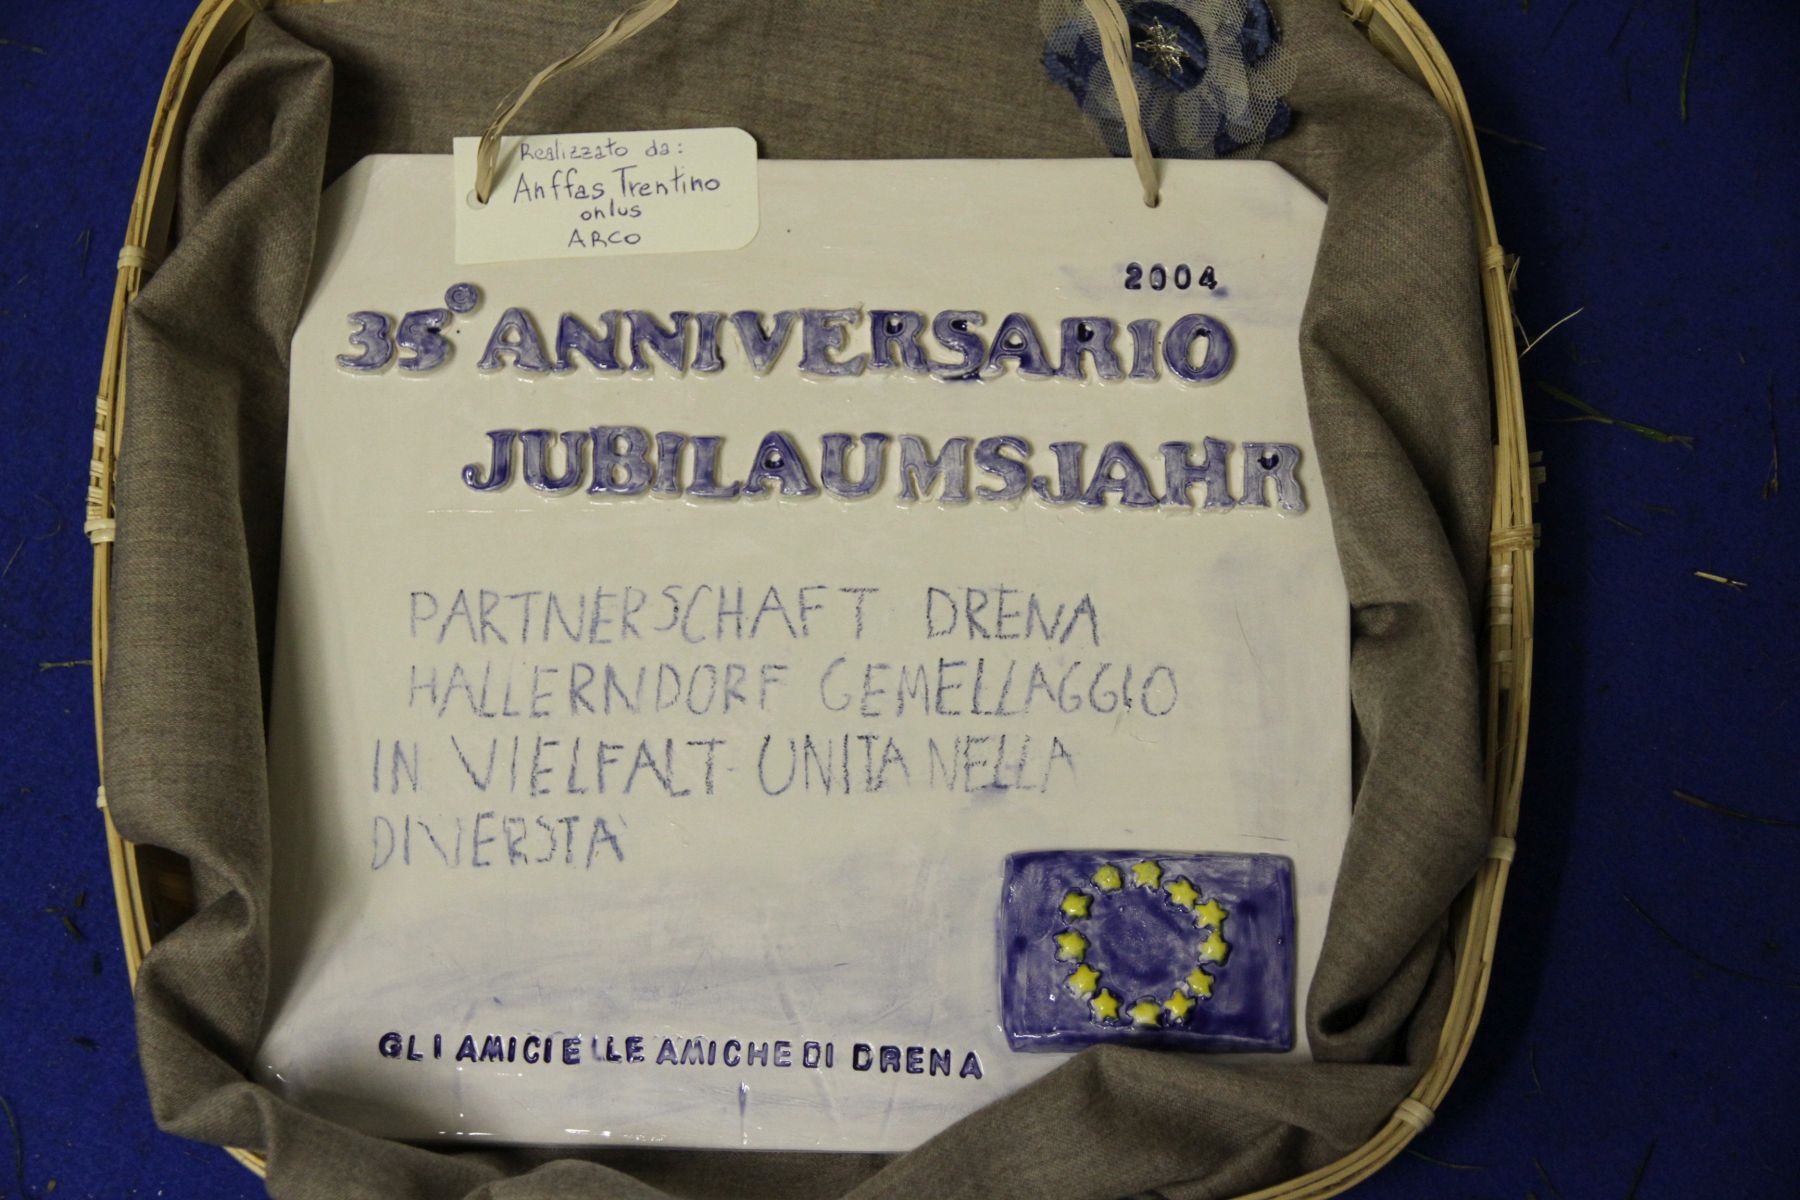 Realizzato da:
Anffas Trentino
onlus
ARCO
2004
35° ANNIVERSARIO
JUBILAUMSJAHR
PARTNERSCHAFT DRENA
HALLERNDORF GEMELLAGGIO
IN VIELFALT UNITA NELLA
DIVERSTA'
GLI AMICI E LLE AMICHE DI DRENA